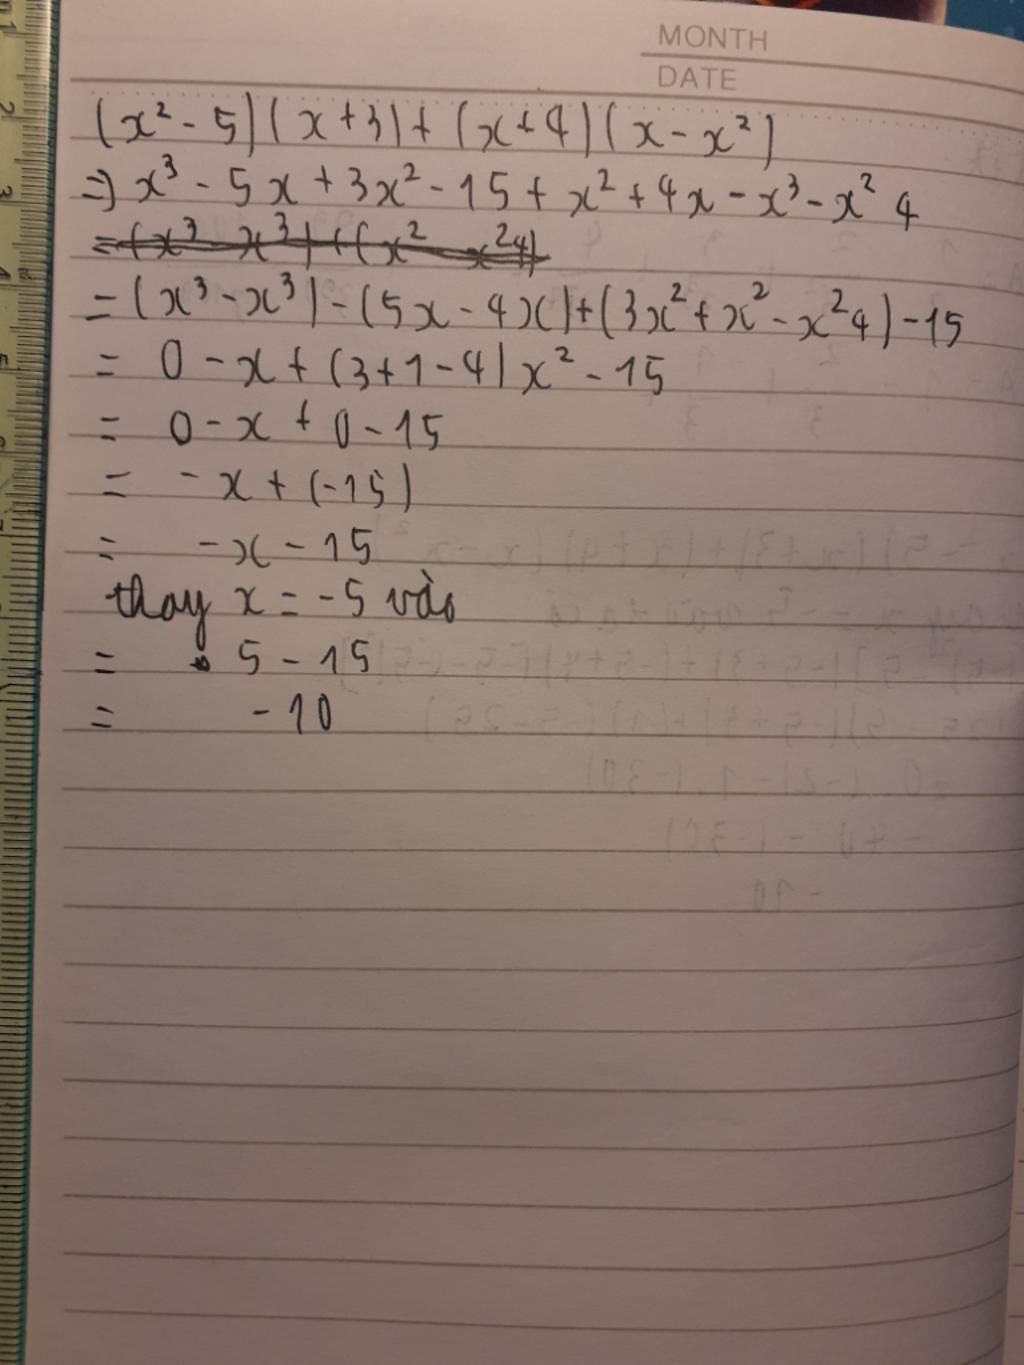 MONTH
DATE
(x² - 5)(x + 3) + (x + 4)(x - x²)
=) x³ - 5x + 3x² - 15 + x² + 4x - x³ - x² 4
= (x³ - x³) - (5x - 4x) + (3x² + x² - x² 4) - 15
= 0 - x + (3 + 1 - 4) x² - 15
= 0 - x + 0 - 15
= - x + (-15)
= -x - 15
thay x = -5 vào
= 5 - 15
= - 10